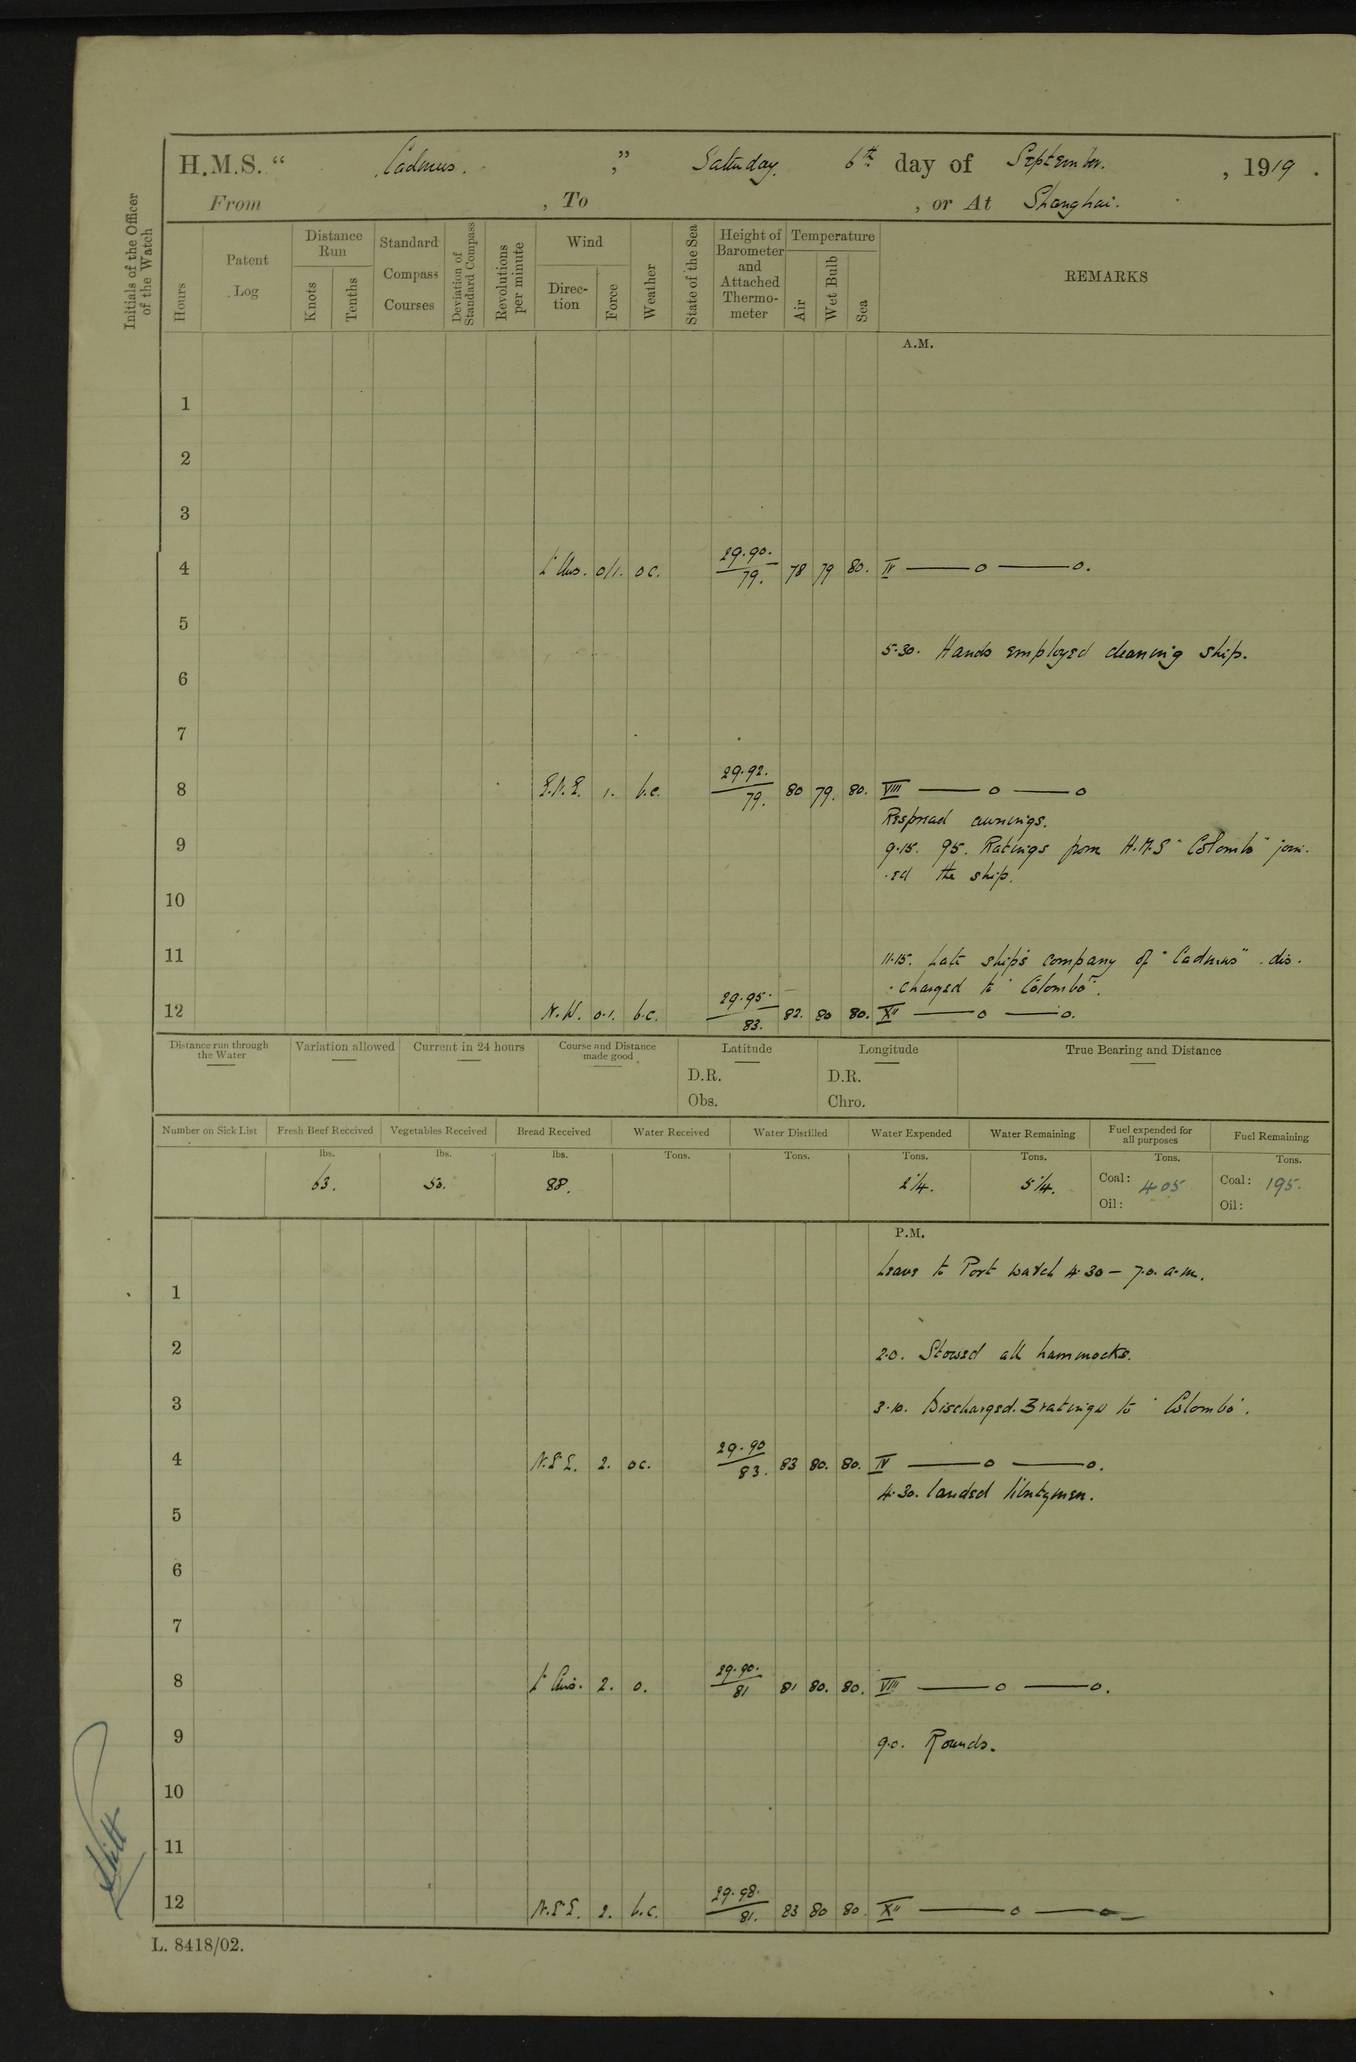 H.M.S. " Cadmus. ," Saturday. 6th day of September. , 1919 .
From , To , or At Shanghai.
Initials of the Officer of the Watch
Hours
Patent Log
Distance Run
Knots
Tenths
Standard Compass Courses
Deviation of Standard Compass
Revolutions per minute
Wind
Direction
Force
Weather
State of the Sea
Height of Barometer and Attached Thermometer
Temperature
Air
Wet Bulb
Sea
REMARKS
A.M.
1
2
3
4 Lt Airs. 0/1. oc. 29.90. 79. 78 79 80. IV —— o —— o.
5
5.30. Hands employed cleaning ship.
6
7
8 E.N.E. 1. b.c. 29.92. 79. 80 79. 80. VIII —— o —— o
Respread awnings.
9 9.15. 95. Ratings from H.M.S "Colombo" join-
-ed the ship.
10
11 11.15. Late ship's company of "Cadmus" dis-
-charged to "Colombo".
12 N.W. 0.1. b.c. 29.95. 83. 82. 80 80. XII —— o —— o.
Distance run through the Water
Variation allowed
Current in 24 hours
Course and Distance made good
Latitude
D.R.
Obs.
Longitude
D.R.
Chro.
True Bearing and Distance
Number on Sick List
Fresh Beef Received lbs. 63.
Vegetables Received lbs. 50.
Bread Received lbs. 88.
Water Received Tons.
Water Distilled Tons.
Water Expended Tons. 2¼.
Water Remaining Tons. 5¼.
Fuel expended for all purposes Tons. Coal: 4.05 Oil:
Fuel Remaining Tons. Coal: 195. Oil:
P.M.
Leave to Port watch 4.30 — 7.0. a.m.
1
2 2.0. Stowed all hammocks.
3 3.10. Discharged. 3 ratings to "Colombo".
4 N.E E. 2. oc. 29.90 83. 83 80. 80. IV —— o —— o.
4.30. landed libertymen.
5
6
7
8 Lt Airs. 2. o. 29.90. 81 81 80. 80. VIII —— o —— o.
9 9.0. Rounds.
10
11
12 N.E E. 2. b.c. 29.98. 81. 83 80 80. XII —— o —— o
L. 8418/02.